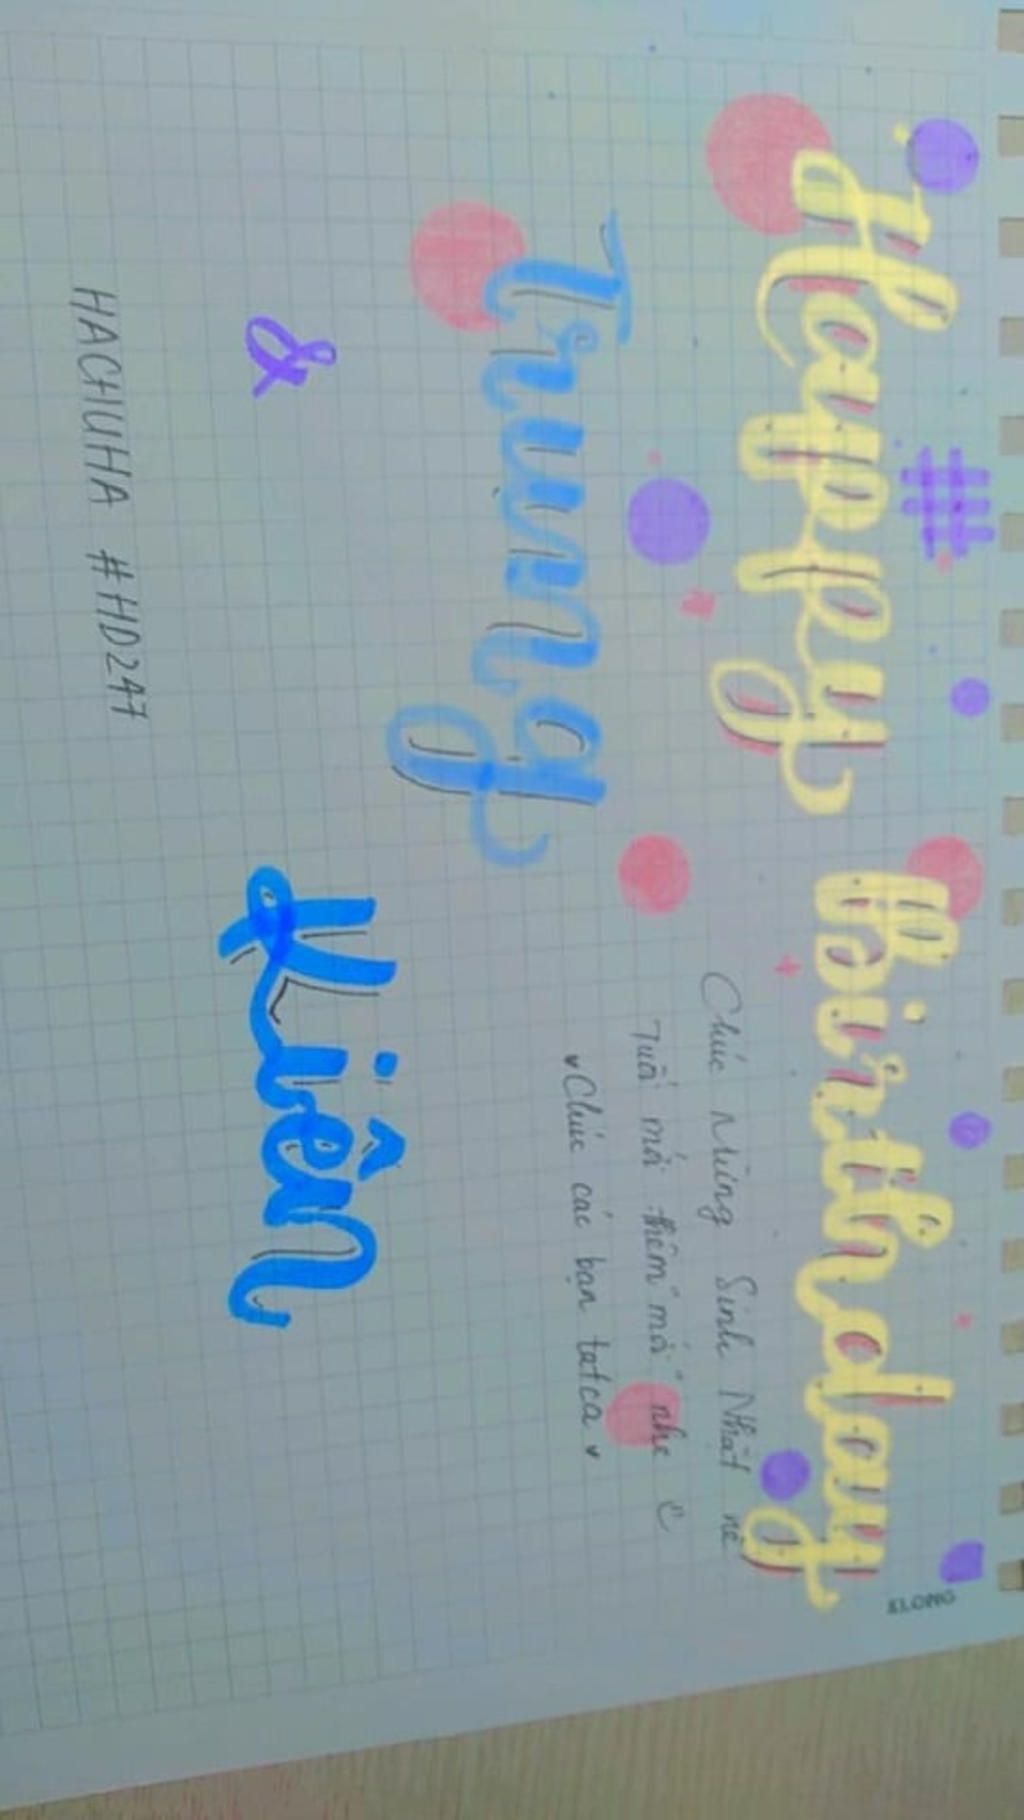 #
Happy birthday
KLONG
Chúc Mừng Sinh Nhật nè
Tuổi mới thêm "mới" nhe
♥Chúc các bạn tatca♥
Trung
& Kiên
HACHUHA #HD247